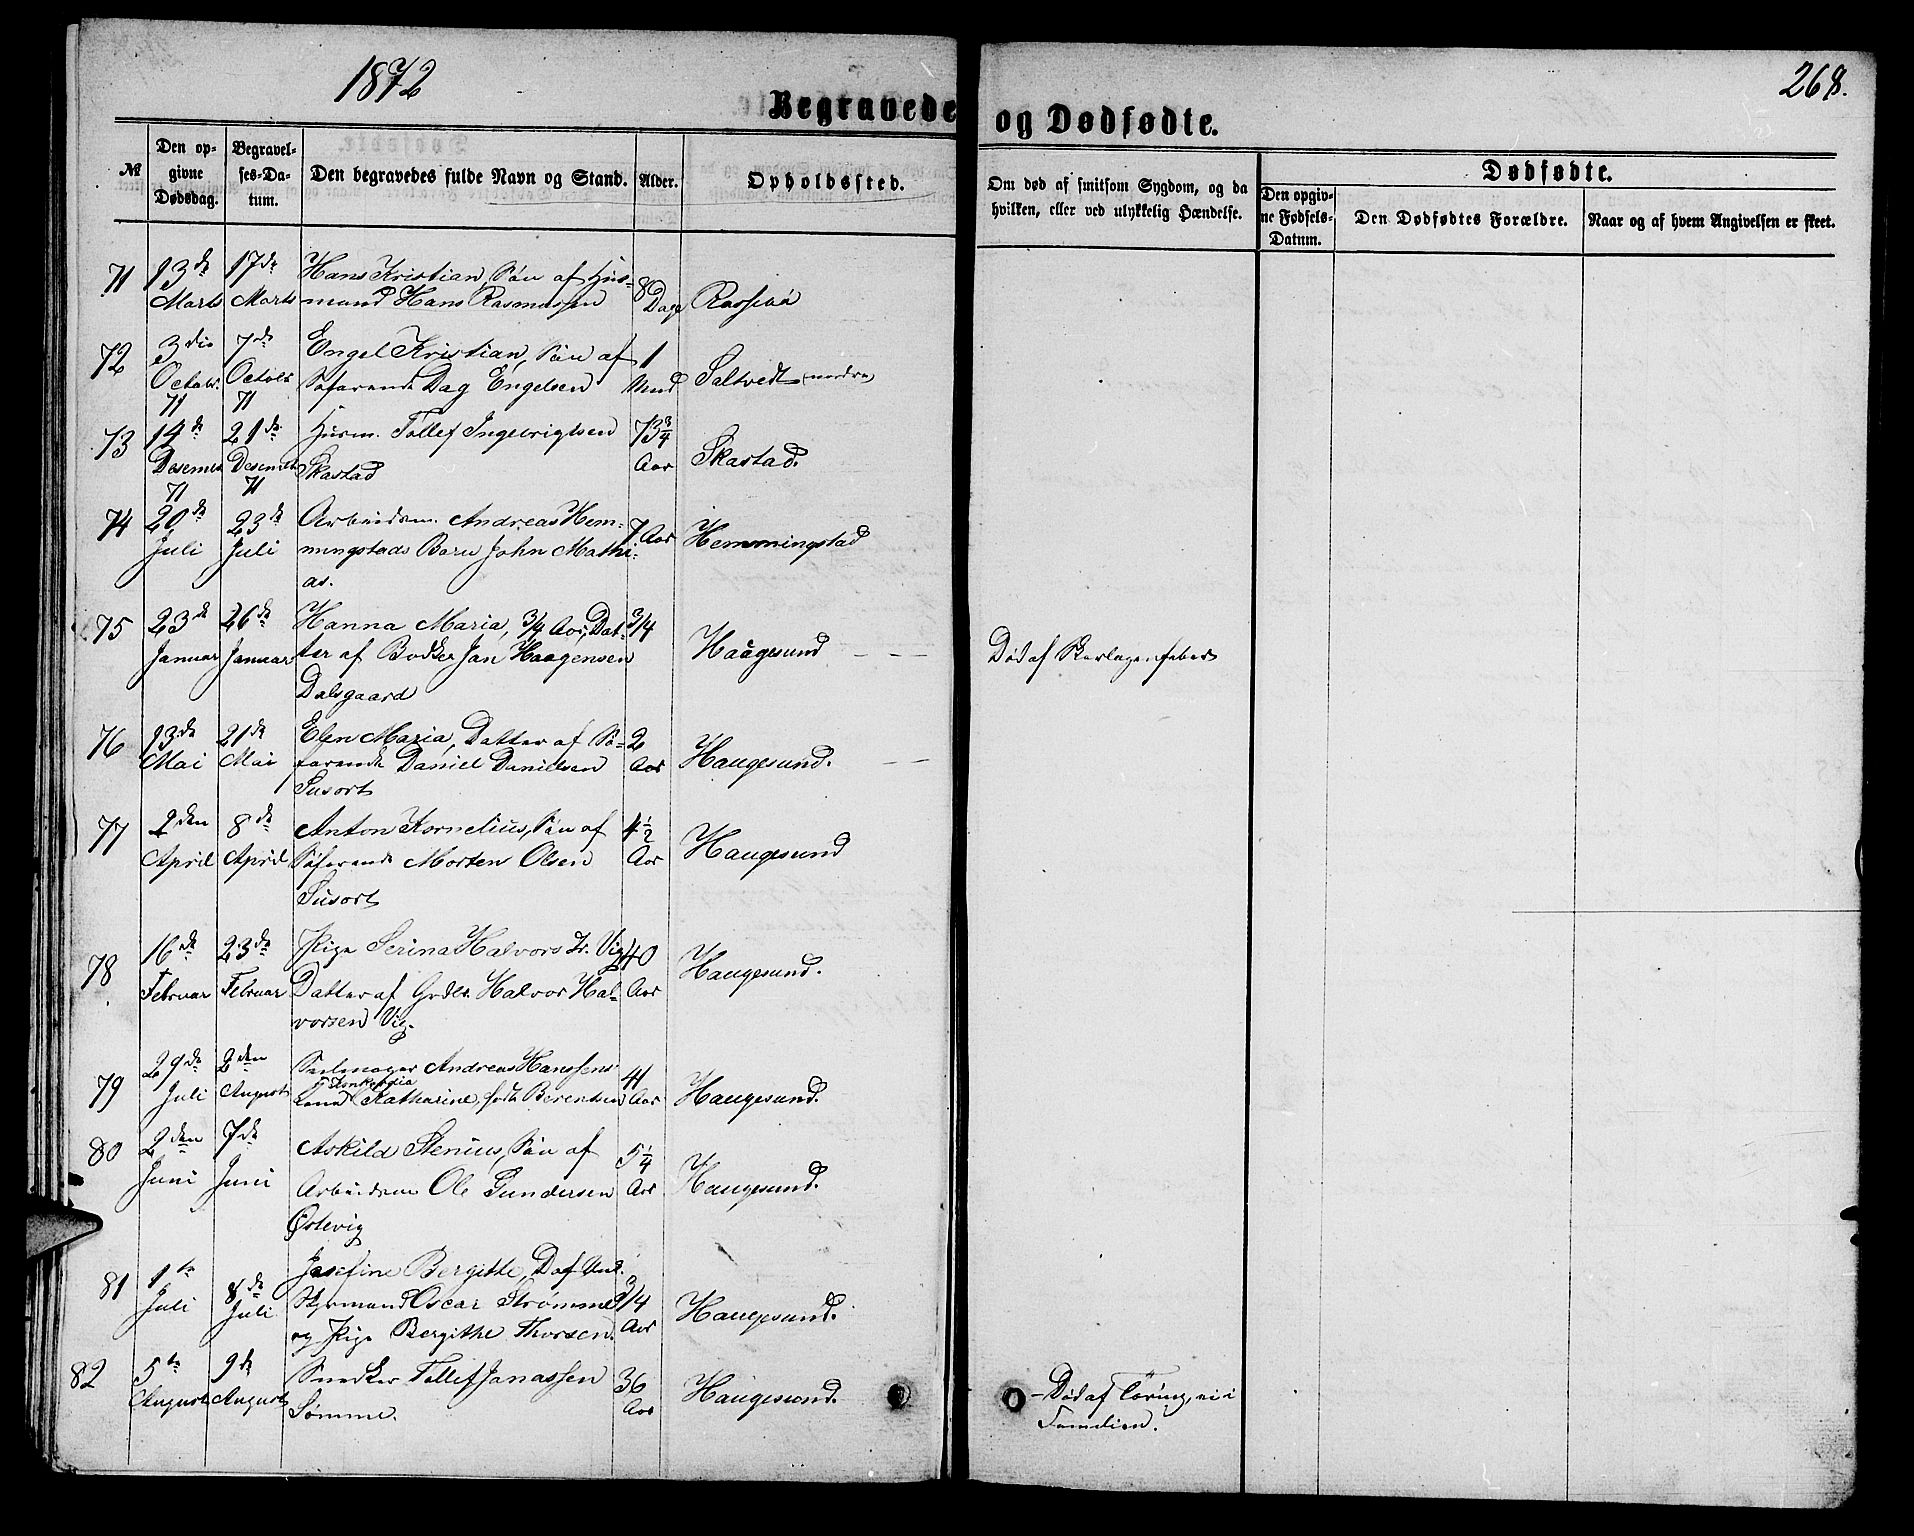 1872
268.
Begravede og Dødfødte.
№
Den opgivne Dødsdag.
Begravelses-Datum.
Den begravedes fulde Navn og Stand.
Alder.
Opholdssted.
Om død af smitsom Sygdom, og da hvilken, eller ved ulykkelig Hændelse.
Dødfødte.
Den opgivne Fødsels-Datum.
Den Dødfødtes Forældre.
Naar og af hvem Angivelsen er skeet.
71 13de Marts 17de Marts Hans Kristian, Søn af Hus- 8 Dage
mand Hans Rasmussen
72 3die Octobr. 71 7de Octobr 71 Engel Kristian, Søn af 1 Mnd Saltvedt nordre
Søfarende Dag Engelsen
73 14de Desember 71 21de Desember 71 Husm. Tollef Ingebrigtsen 73 3/4 Aar Skastad.
Skastad
74 20de Juli 23de Juli Arbeidsm. Andreas Hem- 7 Aar Hemmingstad
mingstads Barn John Mathi-
as.
75 23de Januar 26de Januar Hanna Maria, 3/4 Aar, Dat- 3/4 Haugesund Død af Skarlagensfeber
ter af Bødker Jan Haagensen
Dalsgaard
76 13de Mai 21de Mai Elen Maria, Datter af Sø- 2 Aar Haugesund.
farende Daniel Danielsen
Susort
77 2den April 8de April Anton Kornelius, Søn af 4 1/2 Aar Haugesund
Søfarende Morten Olsen
Susort
78 16de Februar 23de Februar Pige Serina Halvorsdr. Vig 40 Aar Haugesund.
Datter af Grdbr. Halvor Hal-
vorsen Vig.
79 29de Juli 2den August Seilmager Andreas Hanssens 41 Aar Haugesund.
Kone Katharine, født Berentsen
80 2den Juni 7de Juni Askild Stenius, Søn af 5 1/4 Aar Haugesund.
Arbeidsm Ole Gundersen
Østevig
81 1ste Juli 8de Juli Josefine Bergitte, D af Und. 3/4 Aar Haugesund.
Styrmand Oscar Strømme
og Pige Bergithe Thorsen.
82 5te August 9de August Snedker Tollef Janassen 36 Aar Haugesund. Død af Tæring, ei i
Sømme. Familien.